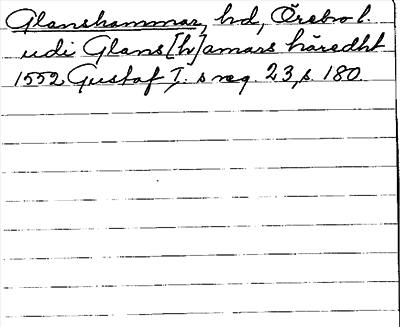 Glanshammar, hd, Örebro l.
udi Glans[h]amars häredht
1552 Gustaf I:s reg. 23, s. 180.